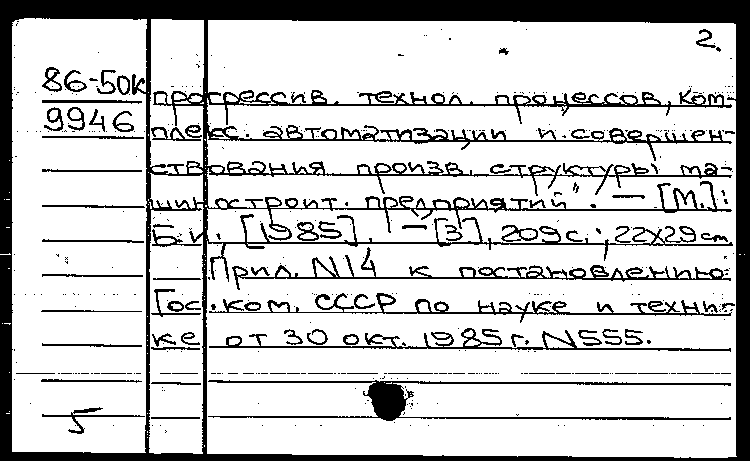 2.
86-50к прогрессив. технол. процессов, ком-
9946 плекс. автоматизации и совершен-
ствования произв. структуры ма-
шиностроит. предприятий". — [М.]:
Б.и., [1985]. — [3], 209 с.; 22х29 см
Прил. N14 к постановлению
Гос. ком. СССР по науке и техни-
ке от 30 окт. 1985 г. N555.
5